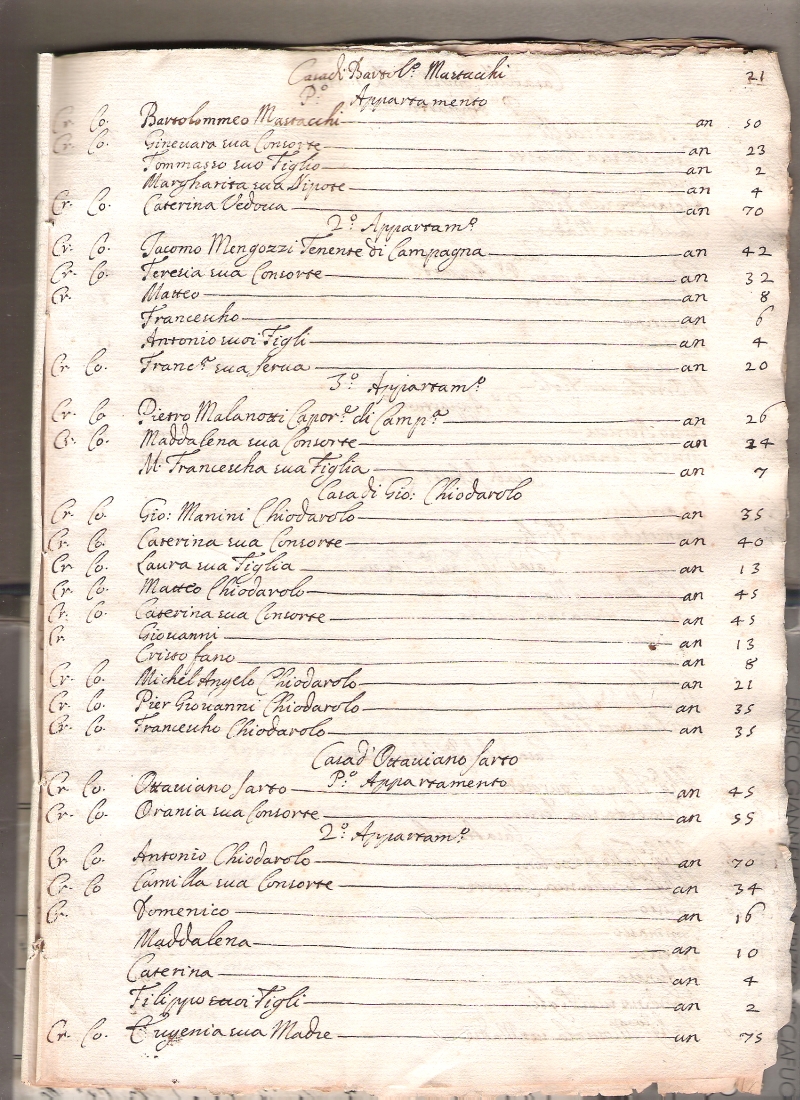 Casa di Bartol.º Mastacchi 21
P.º Appartamento
Cr. Co. Bartolommeo Mastacchi an 50
Cr. Co. Ginevara sua Consorte an 23
Tommasso suo Figlio an 2
Margharita sua Nipote an 4
Cr. Co. Caterina Vedova an 70
2.º Appartam.º
Cr. Co. Jacomo Mengozzi Tenente di Campagna an 42
Cr. Co. Teresia sua Consorte an 32
Cr. Matteo an 8
Francescho an 6
Antonio suoi Figli an 4
Cr. Co. Franc.ª sua Serva an 20
3.º Appartam.º
Cr. Co Pietro Malanotti Capor.e di Camp.ª an 26
Cr. Co. Maddalena sua Consorte an 24
M. Francescha sua Figlia an 7
Casa di Gio: Chiodarolo
Cr. Co. Gio: Manini Chiodarolo an 35
Cr. Co. Caterina sua Consorte an 40
Cr. Co. Laura sua Figlia an 13
Cr. Co. Matteo Chiodarolo an 45
Cr. Co. Caterina sua Consorte an 45
Cr. Giovanni an 13
Cristofano an 8
Cr. Co. Michel Angelo Chiodarolo an 21
Cr. Co. Pier Giovanni Chiodarolo an 35
Cr. Co. Francescho Chiodarolo an 35
Casa d'Ottaviano Sarto
P.º Appartamento
Cr. Co. Ottaviano Sarto an 45
Cr. Co. Orania sua Consorte an 55
2.º Appartam.º
Cr. Co. Antonio Chiodarolo an 70
Cr. Co Camilla sua Consorte an 34
Cr. Domenico an 16
Maddalena an 10
Caterina an 4
Filippo suoi Figli an 2
Cr. Co. Eugenia sua Madre an 75